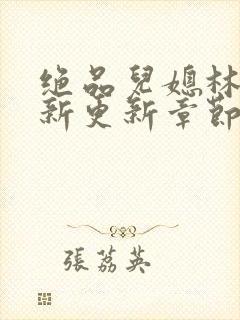 絕品兒媳林
新更新章節
張荔英